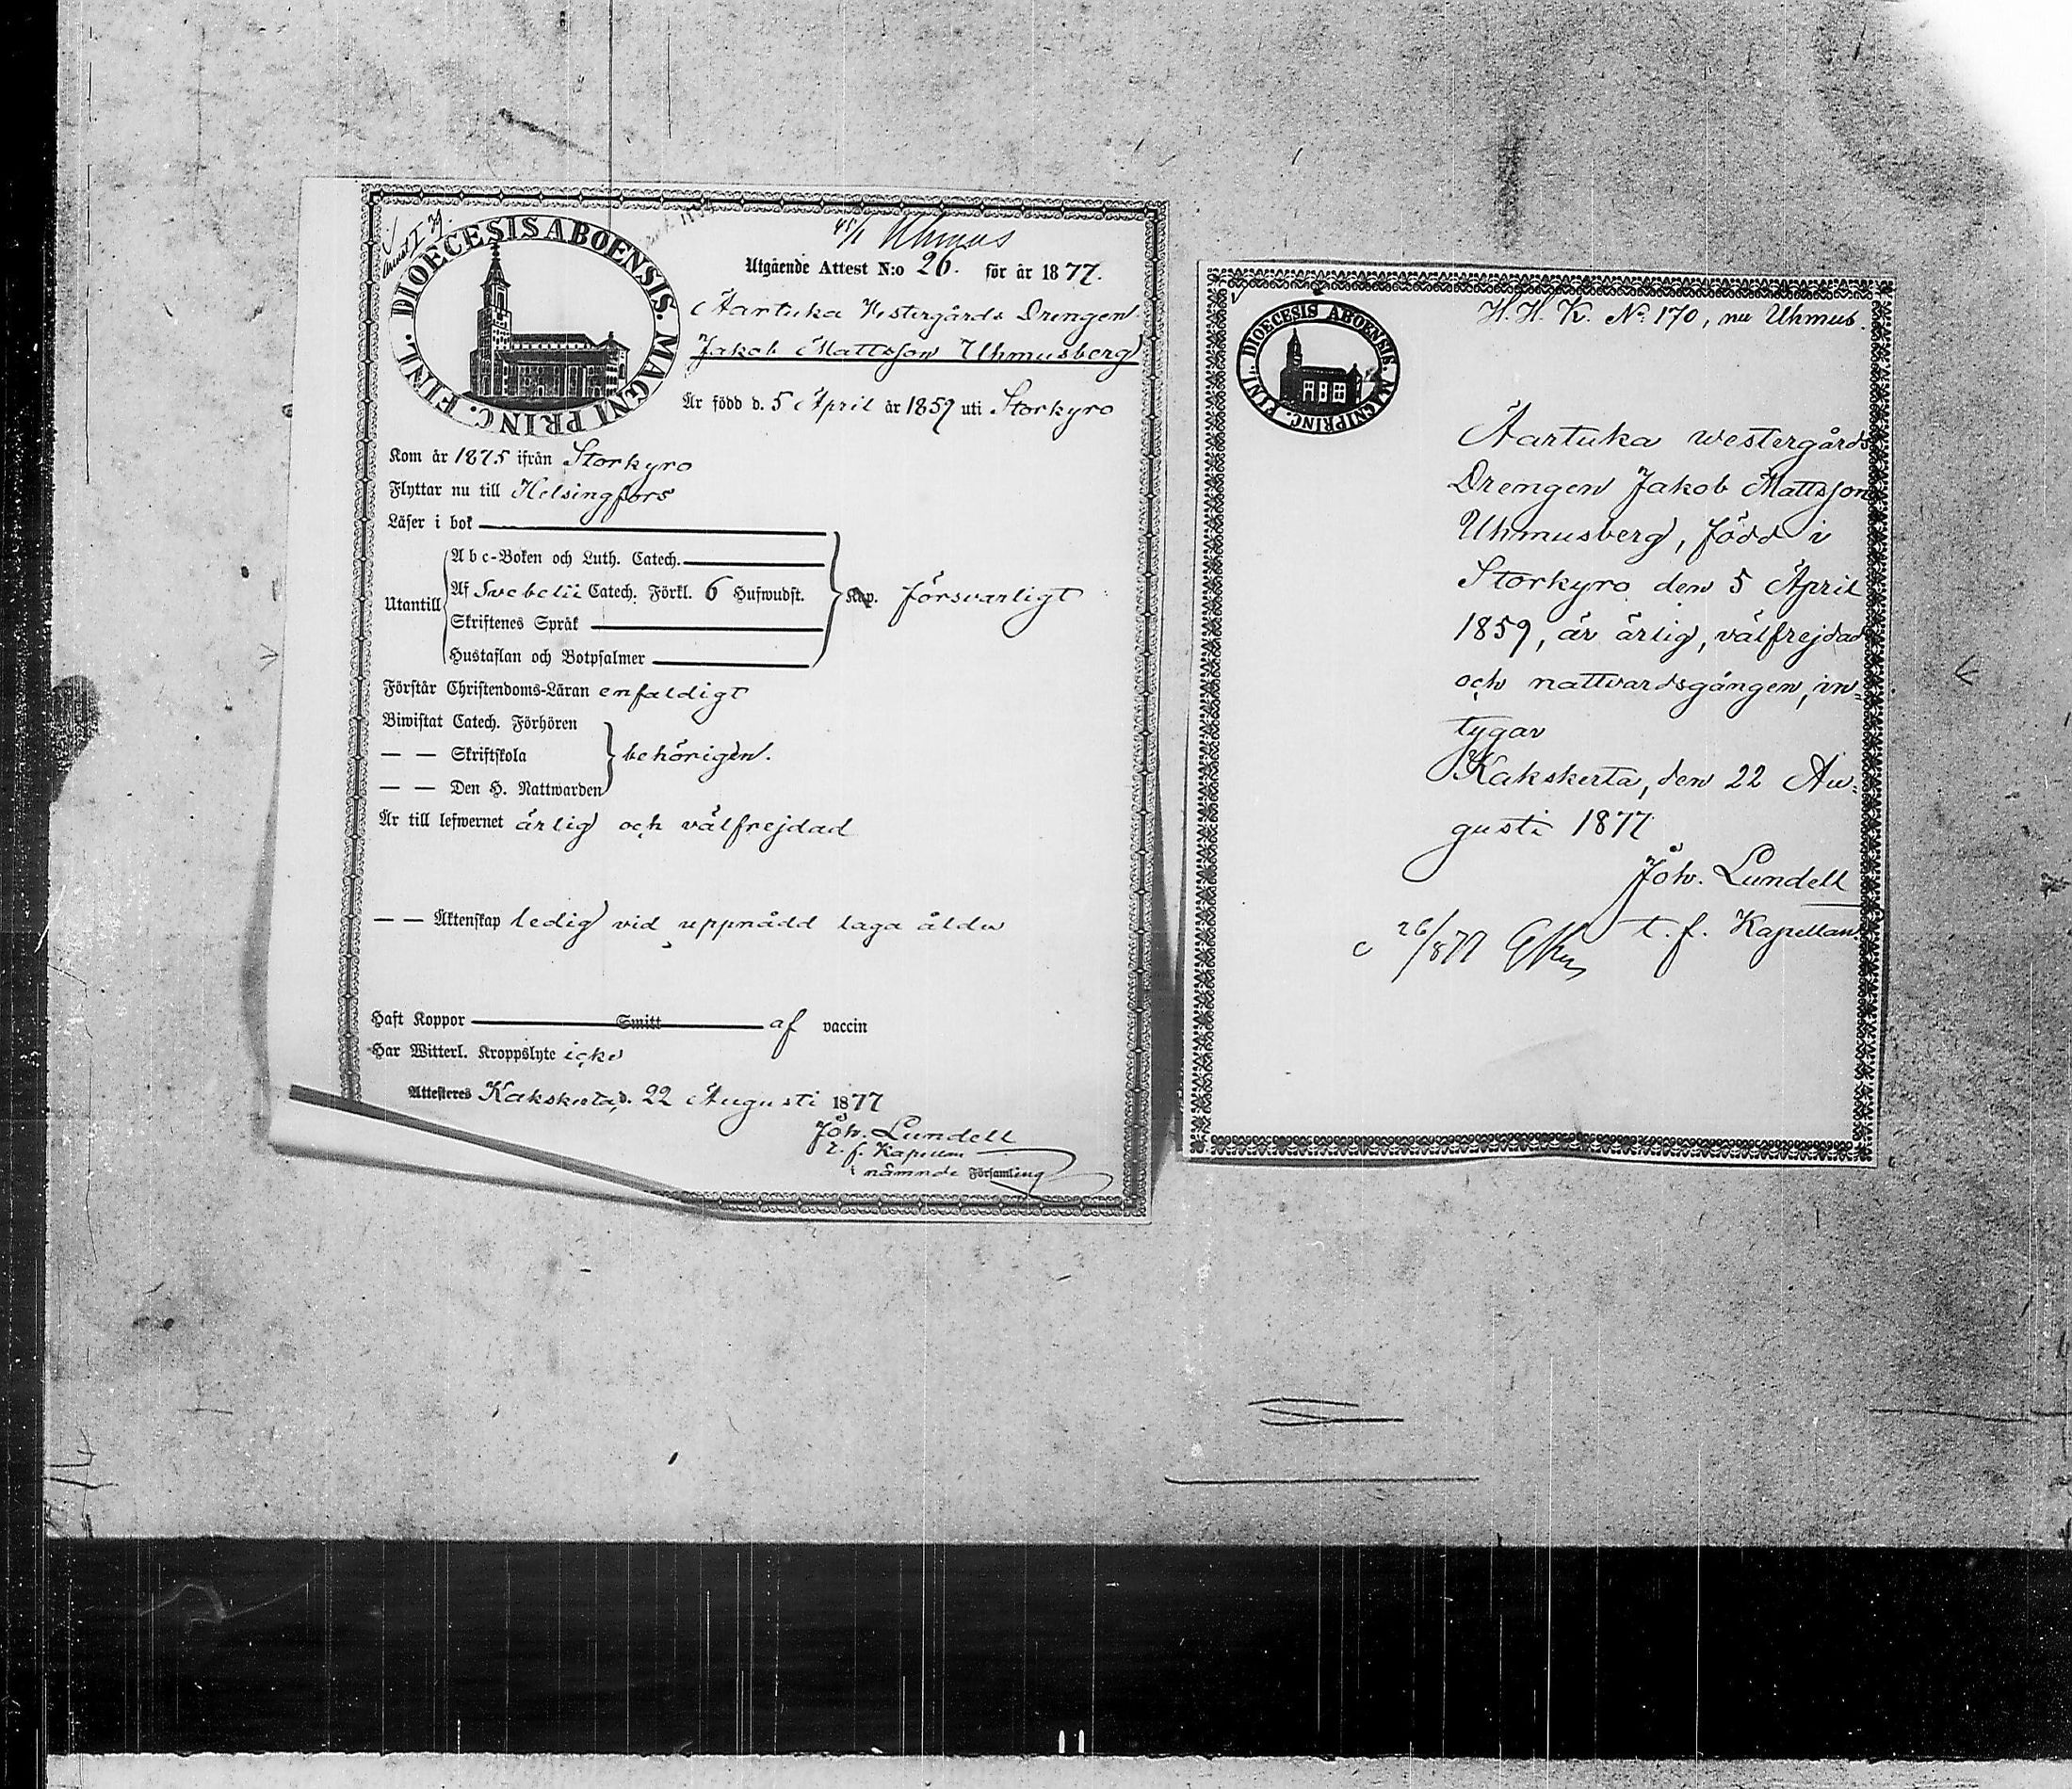 DIOECESIS ABOENSIS. MAGNI PRINC. FINL.
Uhmus
Utgående Attest N:o 26. för år 1877.
Aartuka Westergårds Drengen
Jakob Mattsson Uhmusberg
Är född d. 5 April år 1859 uti Storkyro
Kom år 1875 ifrån Storkyro
Flyttar nu till Helsingfors
Läser i bok
Utantill
Abc-Boken och Luth. Catech.
Af Svebelii Catech. Förkl. 6 Hufwudst.
Skriftenes Språk
Hustaflan och Botpsalmer
Kap. försvarligt
Förstår Christendoms-Läran enfaldigt
Biwistat Catech. Förhören
— — Skriftskola
— — Den H. Nattwarden
behörigen.
Är till lefwernet ärlig och välfrejdad
— — Äktenskap ledig vid uppnådd laga ålder
Haft Koppor Smitt af vaccin
Har Witterl. Kroppslyte icke
Attesteres Kakskerta, d. 22 Augusti 1877
Joh. Lundell
t. f. Kapellan
i nämnde Församling
DIOECESIS ABOENSIS. MAGNI PRINC. FINL.
H. H. K. No 170, nu Uhmus.
Aartuka westergårds
Drengen Jakob Mattsson
Uhmusberg, född i
Storkyro den 5 April
1859, är ärlig, välfrejdad
och nattvardsgången, in-
tygar
Kakskerta, den 22 Au-
gusti 1877
Joh. Lundell
t. f. Kapellan.
26/877